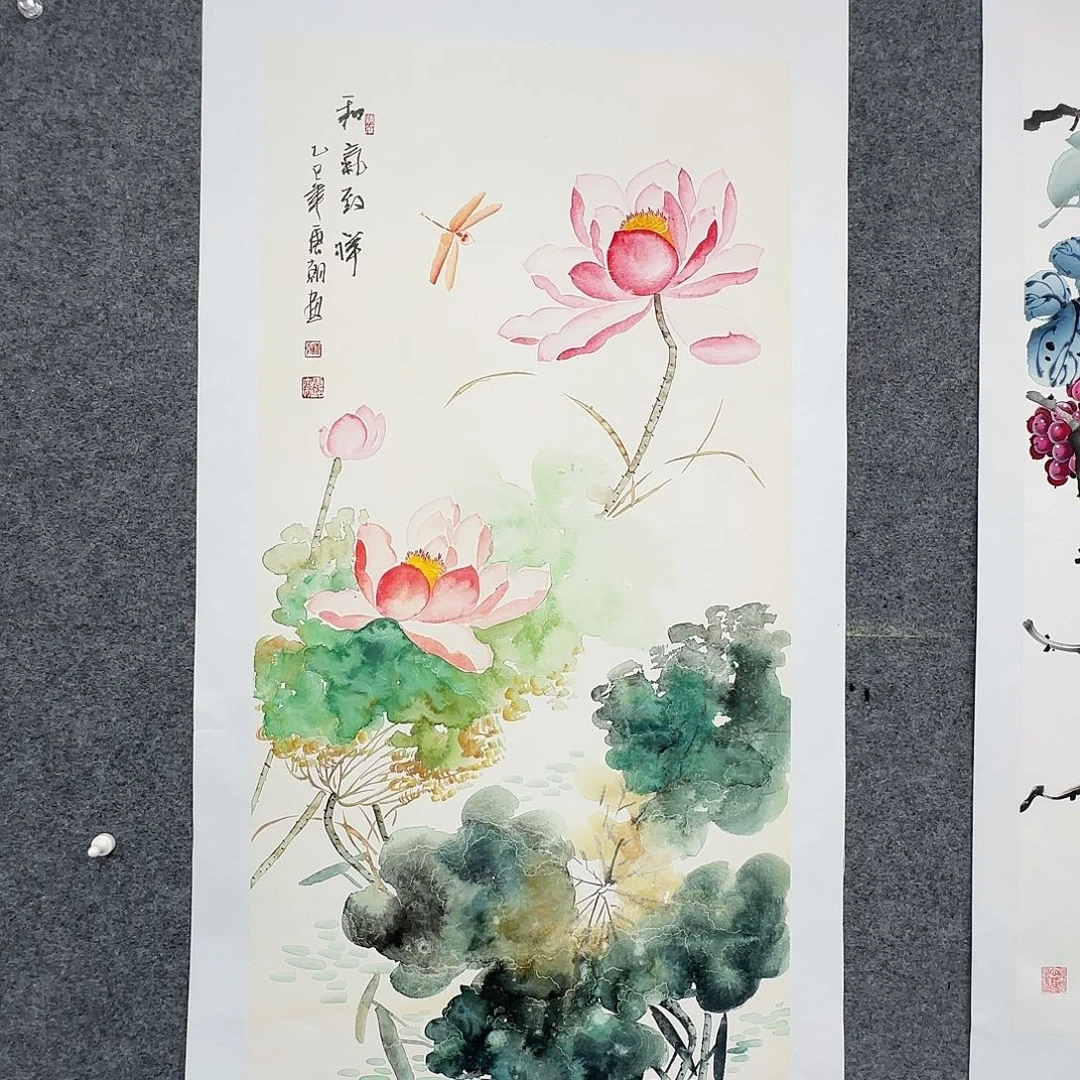 和氣致祥
乙巳年唐朝画